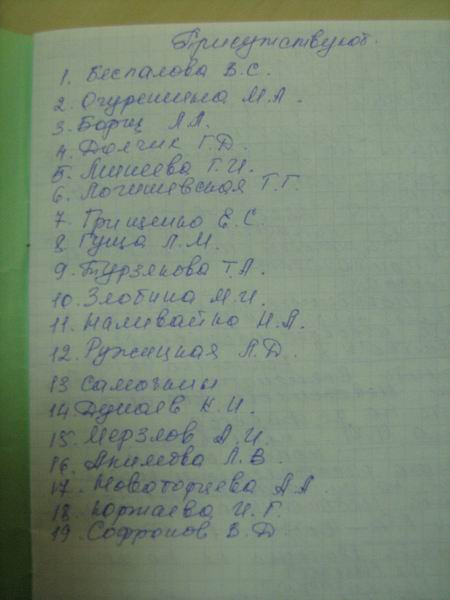 Присутствуют.
1. Беспалова В.С.
2. Огурешина М.А.
3. Борщ Л.Л.
4. Долчик Г.Д.
5. Минеева Т.И.
6. Логишевская Т.Г.
7. Грищенко Е.С.
8. Гуща Л.М.
9. Турзякова Т.А.
10. Злобина М.И.
11. Наливайко Н.А.
12. Ружицкая Л.Д.
13
14 Дунаев Н.И.
15. Мерзлов А.И.
16. Акимова Л.В
17. Новаторцева А.А
18. И.Г.
19. Софронов В.Д